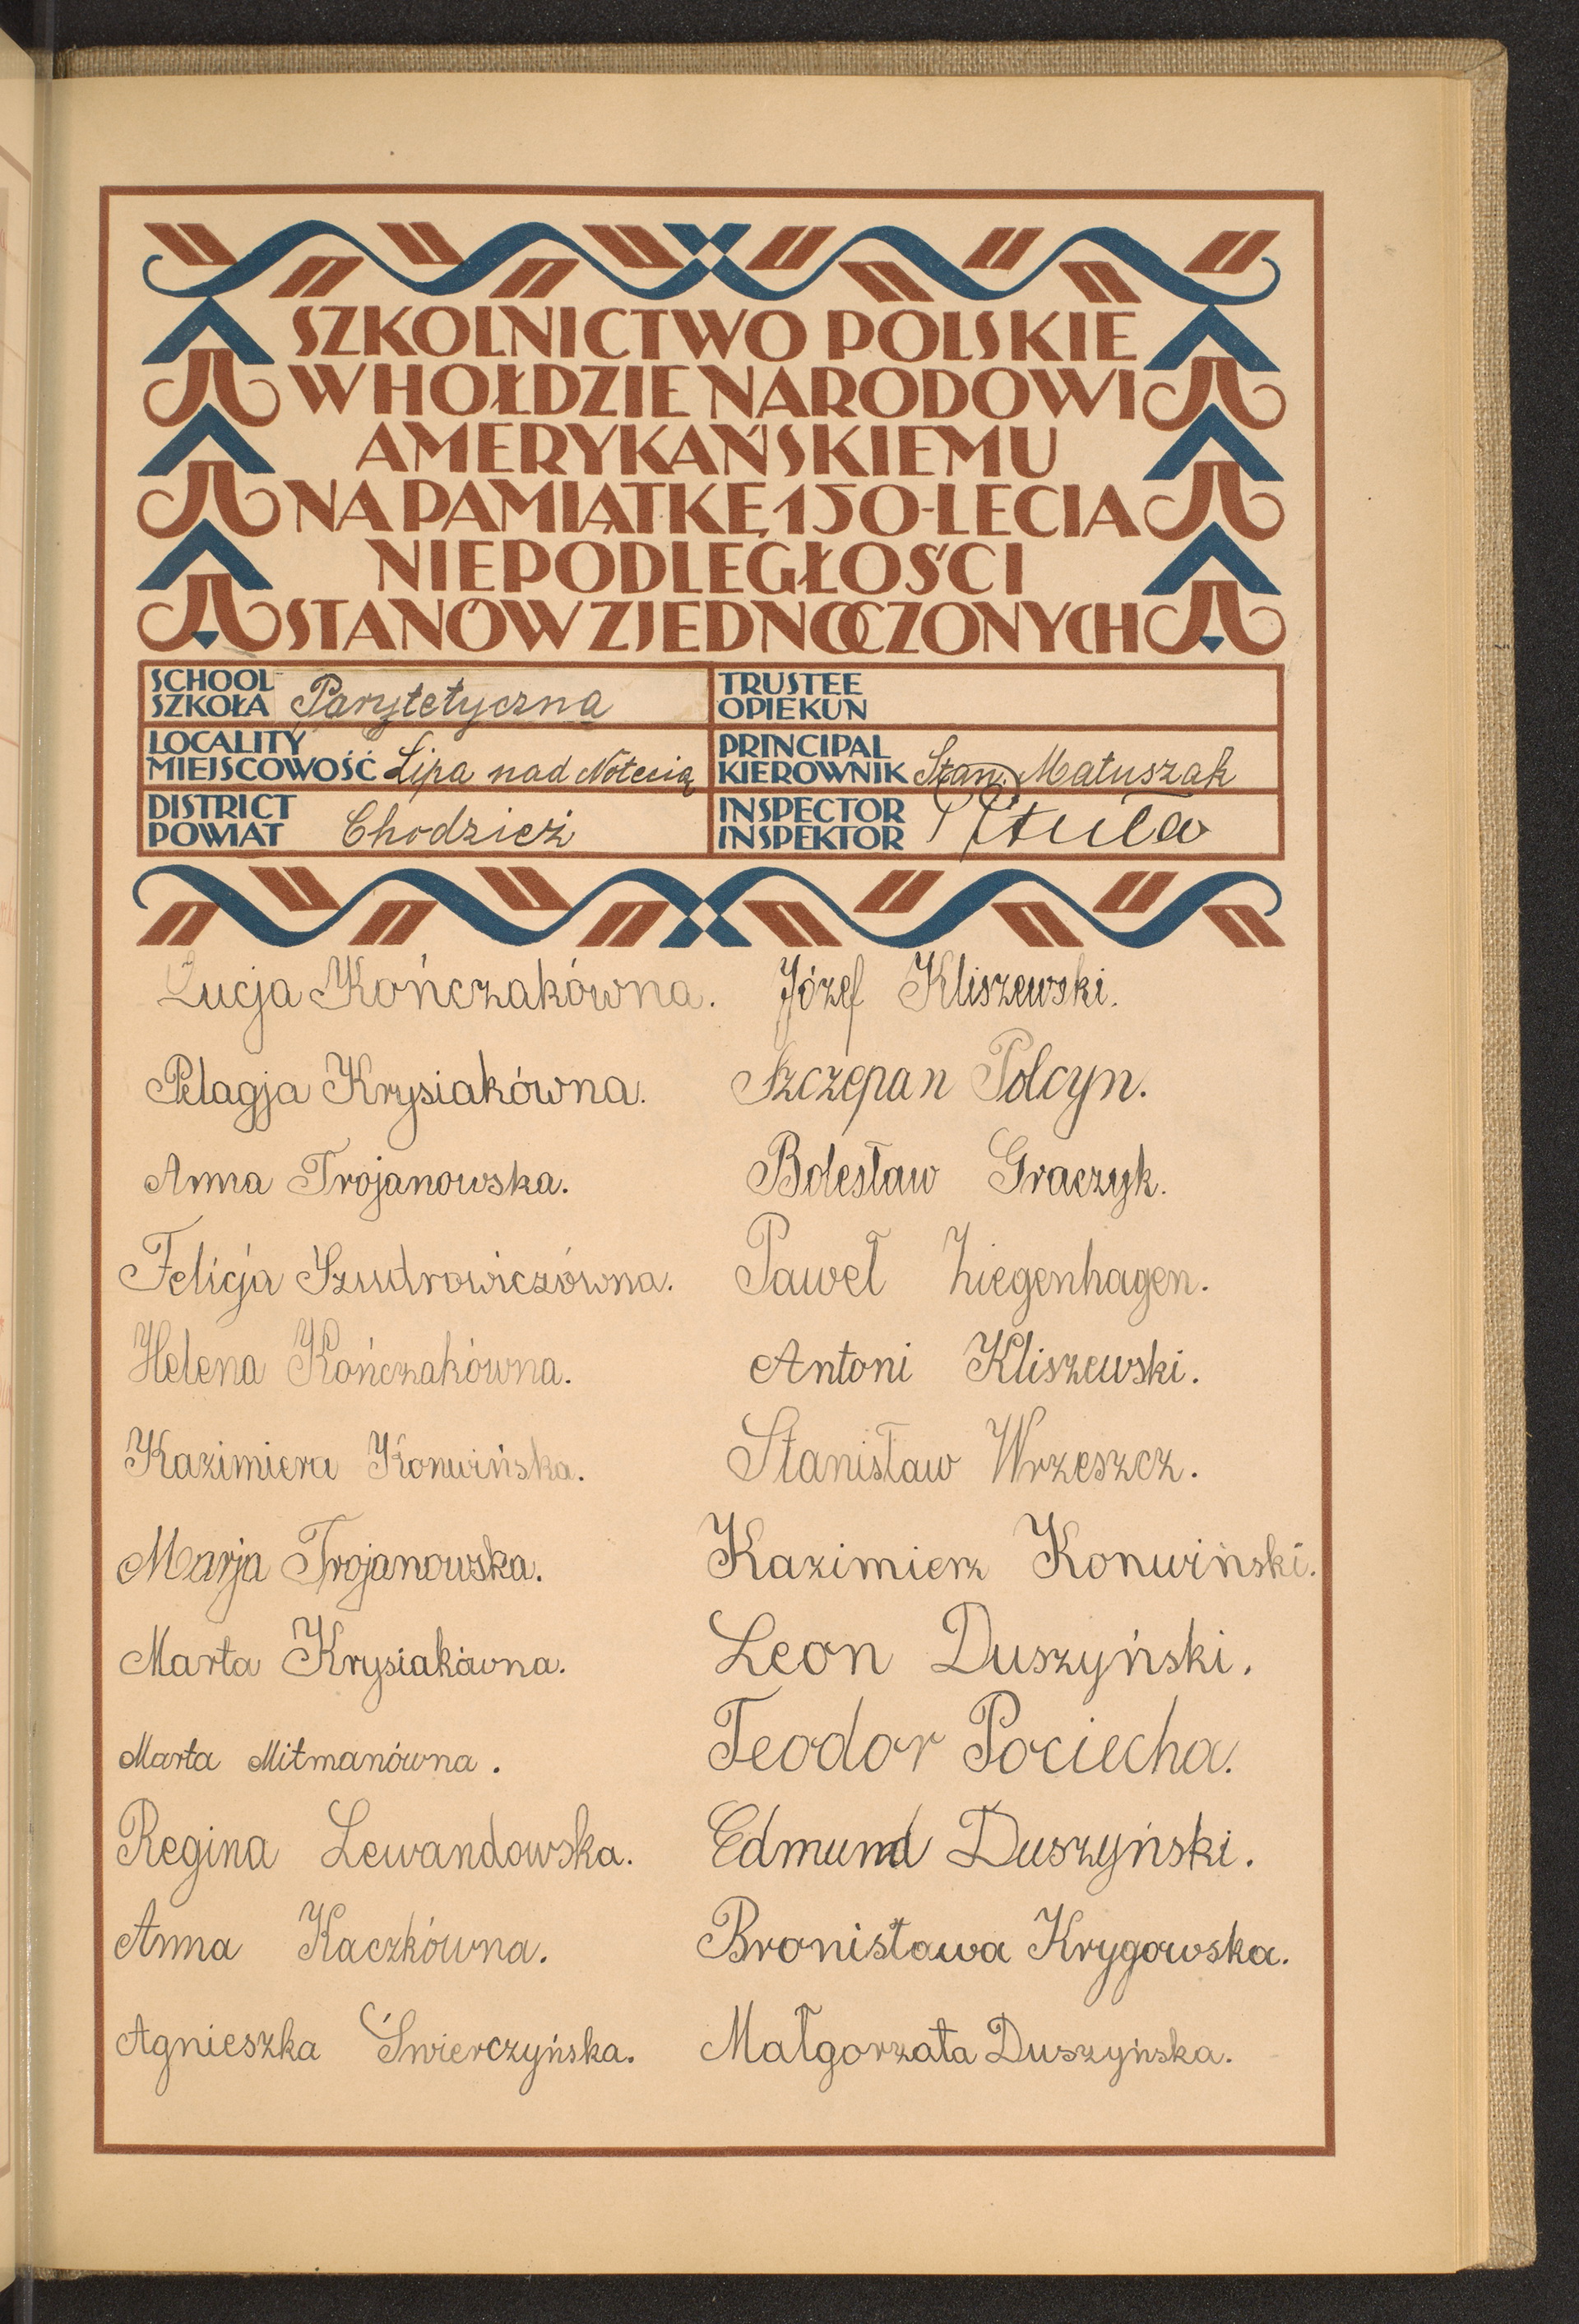 SZKOLNICTWO POLSKIE
W HOŁDZIE NARODOWI
AMERYKAŃSKIEMU
NA PAMIĄTKĘ 150-LECIA
NIEPODLEGŁOŚCI
STANÓW ZJEDNOCZONYCH
SCHOOL
SZKOŁA Parytetyczna
TRUSTEE
OPIEKUN
LOCALITY
MIEJSCOWOŚĆ Lipa nad Notecią
PRINCIPAL
KIEROWNIK Stan. Matuszak
DISTRICT
POWIAT Chodzież
INSPECTOR
INSPEKTOR
Łucja Kończakówna. Józef Kliszewski.
Pelagja Krysiakówna. Szczepan Polcyn.
Anna Trojanowska. Bolesław Graczyk.
Felicja Szudrowiczówna. Paweł Ziegenhagen.
Helena Kończakówna. Antoni Kliszewski.
Kazimiera Konwińska. Stanisław Wrzeszcz.
Marja Trojanowska. Kazimierz Konwiński.
Marta Krysiakówna. Leon Duszyński.
Marta Mitmanówna. Teodor Pociecha.
Regina Lewandowska. Edmund Duszyński.
Anna Kaczkówna. Bronisława Krygowska.
Agnieszka Świerczyńska. Małgorzata Duszyńska.